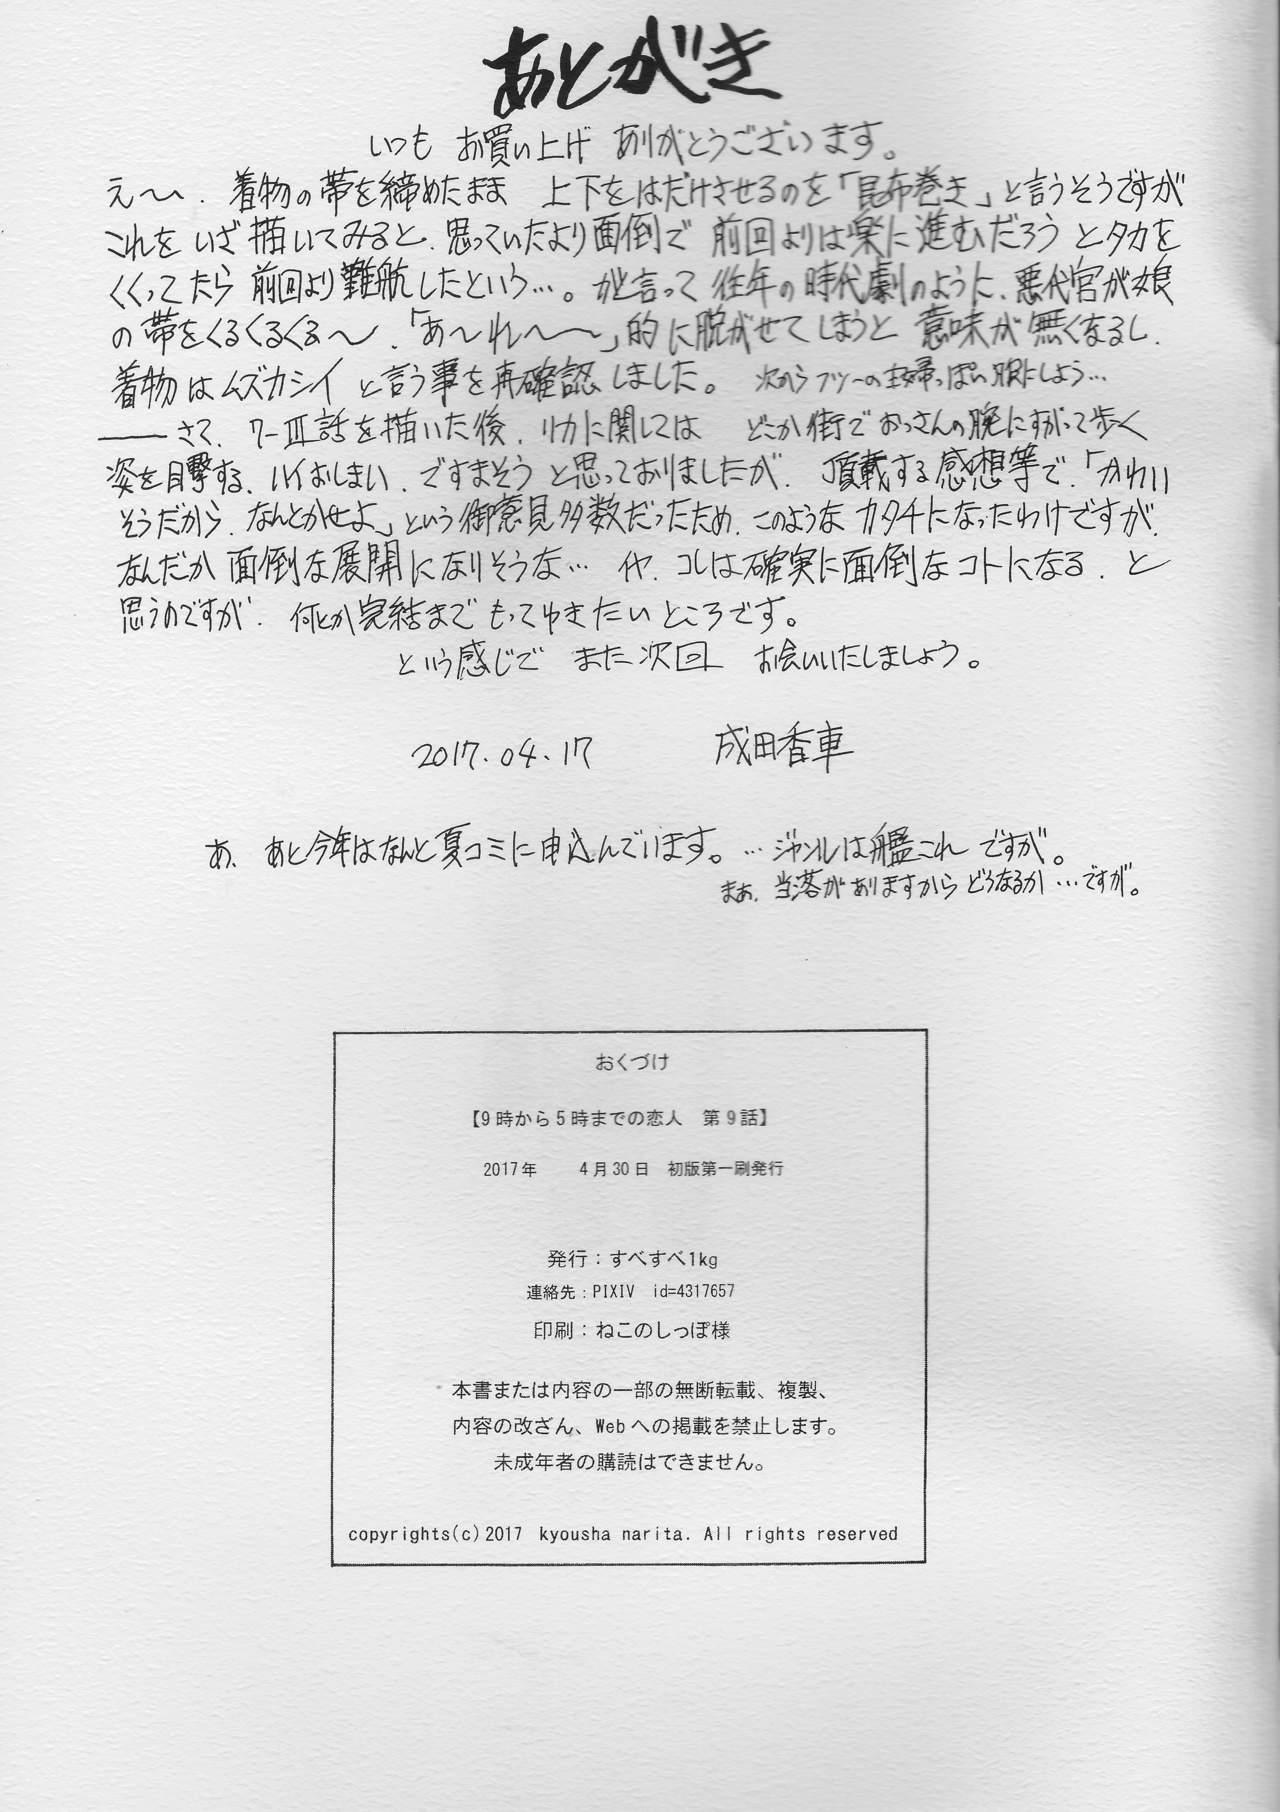 あとがき
いつも お買い上げ ありがとうございます。
え〜、着物の帯を締めたまま 上下をはだけさせるのを「昆布巻き」と言うそうですが
これを いざ 描いてみると、思っていたより面倒で 前回よりは楽に進むだろう とタカを
くくってたら 前回より難航したという…。かと言って 往年の時代劇のように、悪代官が娘
の帯をくるくるくる〜、「あ〜れ〜〜」的に脱がせてしまうと 意味が無くなるし、
着物はムズカシイ と言う事を再確認しました。 次からフツーの主婦っぽい服にしよう…
――さて、7-Ⅲ話を描いた後、リカに関しては どこか街でおっさんの腕にすがって歩く
姿を目撃する、ハイおしまい、ですまそう と思っておりましたが、頂戴する感想等で、「かわい
そうだから、なんとかせよ」という御意見多数だったため、このようなカタチになったわけですが、
なんだか 面倒な展開になりそうな… イヤ、コレは確実に面倒なコトになる、と
思うのですが、何とか完結まで もってゆきたいところです。
という感じで また次回 お会いいたしましょう。
2017.04.17 成田香車
あ、あと今年はなんと夏コミに申込んでいます。…ジャンルは艦これ ですが。
まあ、当落がありますから どうなるか…ですが。
おくづけ
【9時から5時までの恋人 第9話】
2017年 4月30日 初版第一刷発行
発行：すべすべ1kg
連絡先：PIXIV id=4317657
印刷：ねこのしっぽ様
本書または内容の一部の無断転載、複製、
内容の改ざん、Webへの掲載を禁止します。
未成年者の購読はできません。
copyrights(c)2017 kyousha narita. All rights reserved